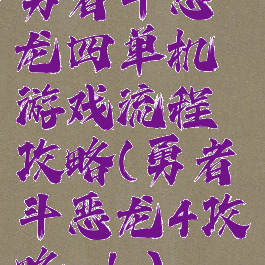 勇者斗恶
龙四单机
游戏流程
攻略(勇者
斗恶龙4攻
略…( )